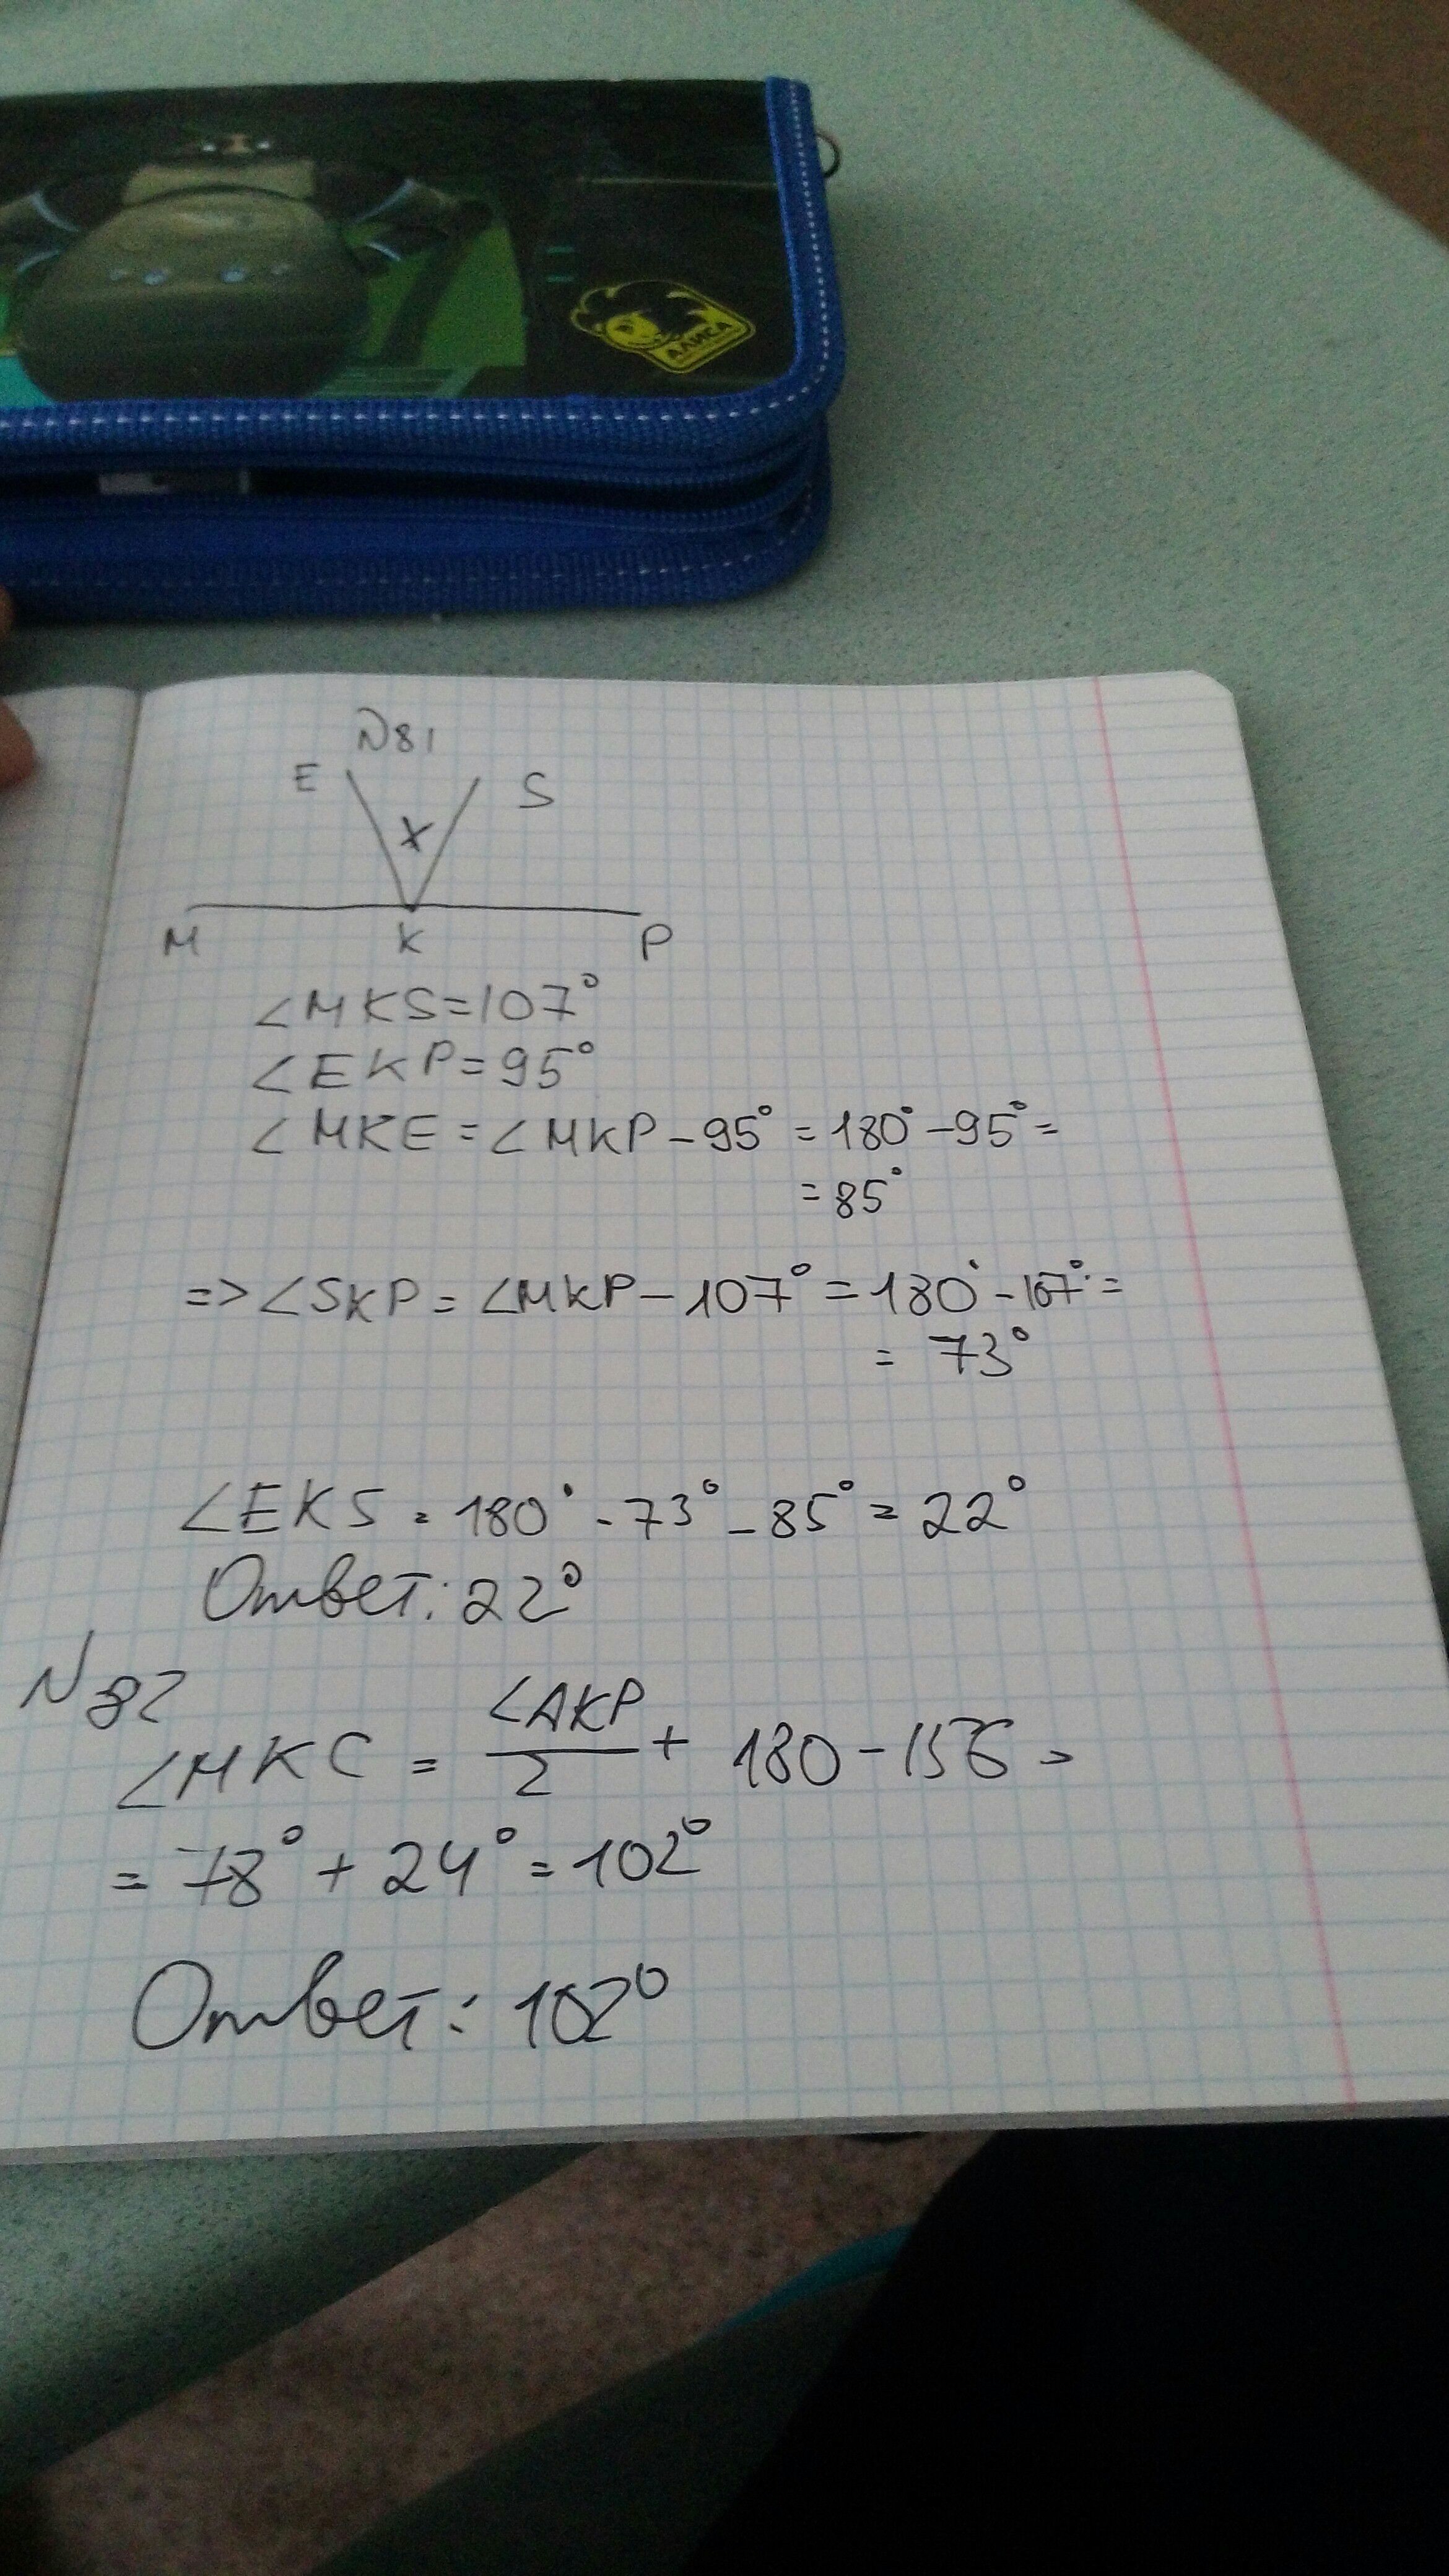 АЛИСА
N81
E S
x
M K P
∠MKS=107°
∠EKP=95°
∠MKE=∠MKP-95°=180°-95°=
=85°
=>∠SKP=∠MKP-107°=180°-107°=
= 73°
∠EKS=180°-73°-85°=22°
Ответ: 22°
N82
∠MKC = ∠AKP/2 + 180-156=
=78°+24°=102°
Ответ: 102°